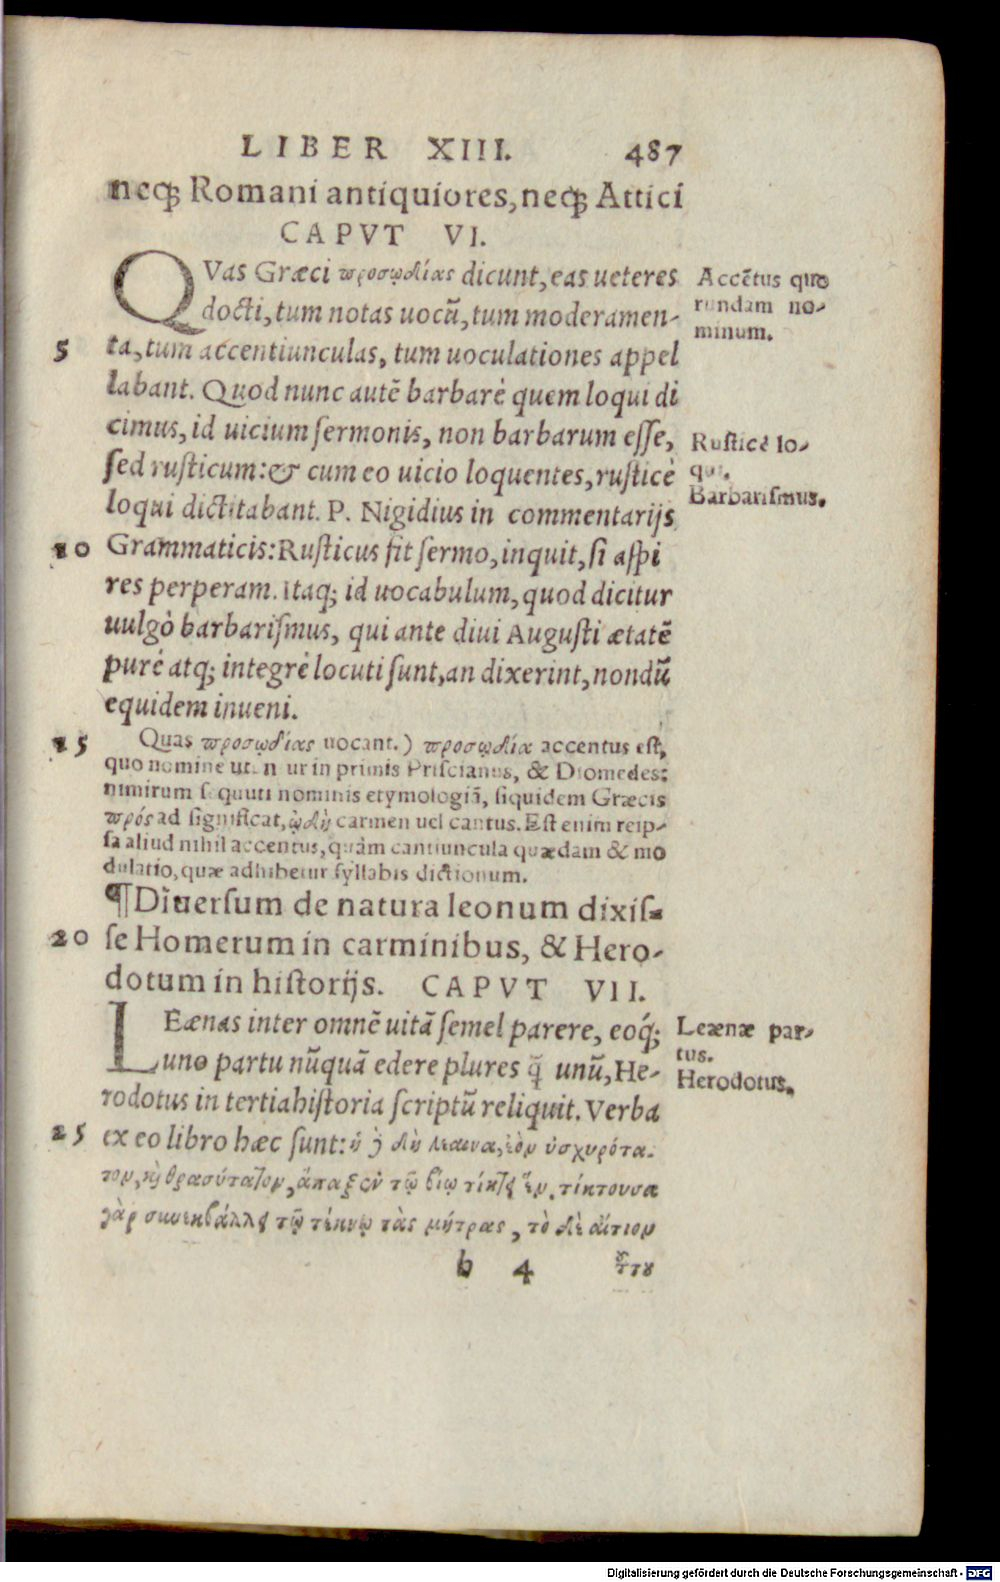 LIBER XIII. 487
neq́; Romani antiquiores, neq́; Attici
CAPVT VI.
QVas Græci προσῳδίας dicunt, eas ueteres
docti, tum notas uocū, tum moderamen-
5 ta, tum accentiunculas, tum uoculationes appel
labant. Quod nunc autē barbarè quem loqui di
cimus, id uicium ſermonis, non barbarum eſſe,
ſed ruſticum: & cum eo uicio loquentes, ruſticè
loqui dictitabant. P. Nigidius in commentarijs
10 Grammaticis: Ruſticus fit ſermo, inquit, ſi aſpi
res perperam. Itaq; id uocabulum, quod dicitur
uulgò barbariſmus, qui ante diui Auguſti ætatē
purè atq; integrè locuti ſunt, an dixerint, nondū
equidem inueni.
15 Quas προσῳδίας uocant.) προσῳδία accentus eſt,
quo nomine utuntur in primis Priſcianus, & Diomedes:
nimirum ſequuti nominis etymologiā, ſiquidem Græcis
πρός ad ſignificat, ᾠδὴ carmen uel cantus. Eſt enim reip-
ſa aliud nihil accentus, quàm cantiuncula quædam & mo
dulatio, quæ adhibetur ſyllabis dictionum.
¶Diuerſum de natura leonum dixiſ-
20 ſe Homerum in carminibus, & Hero-
dotum in hiſtorijs. CAPVT VII.
LEænas inter omnē uitā ſemel parere, eoq́;
uno partu nūquā edere plures q̄ unū, He-
rodotus in tertia hiſtoria ſcriptū reliquit. Verba
25 ex eo libro hæc ſunt: ἡ δὲ δὴ λέαινα, ἐὸν ἰσχυρότα-
τον, καὶ θρασύτατον, ἅπαξ ἐν τῷ βίῳ τίκτει ἕν. τίκτουσα
γὰρ συνεκβάλλει τῷ τέκνῳ τὰς μήτρας, τὸ δὲ αἴτιον
b 4 τού
Accētus quo
rundam no-
minum.
Ruſticè lo-
qui.
Barbariſmus.
Leænæ par-
tus.
Herodotus.
Digitalisierung gefördert durch die Deutsche Forschungsgemeinschaft - DFG